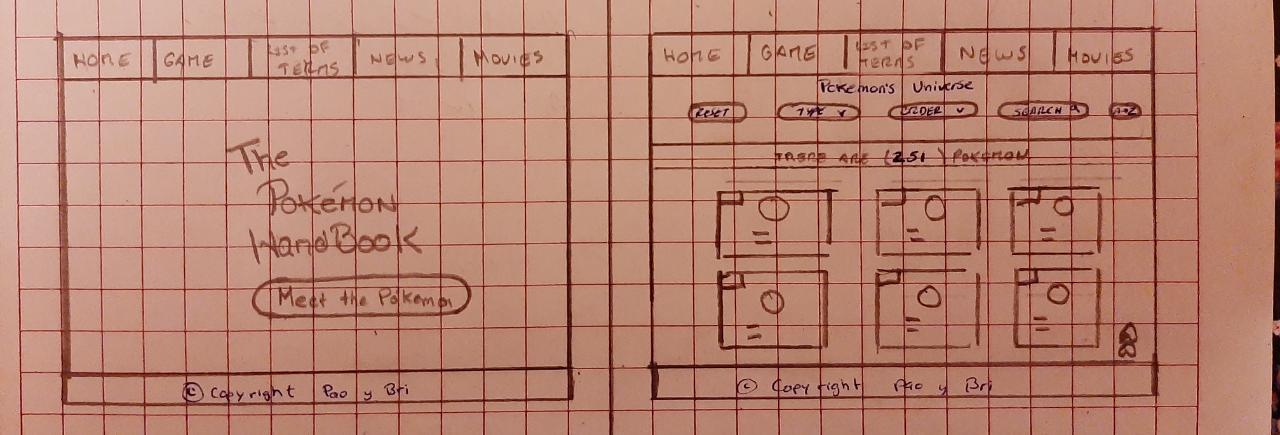 HOME GAME LIST OF TERMS NEWS MOVIES
The
Pokémon
HandBook
Meet the Pokemon
© Copyright Pao y Bri
HOME GAME LIST OF TERMS NEWS MOVIES
Pokemon's Universe
RESET TYPE ORDER SEARCH
THERE ARE (251) POKEMON
© Copyright Pao y Bri